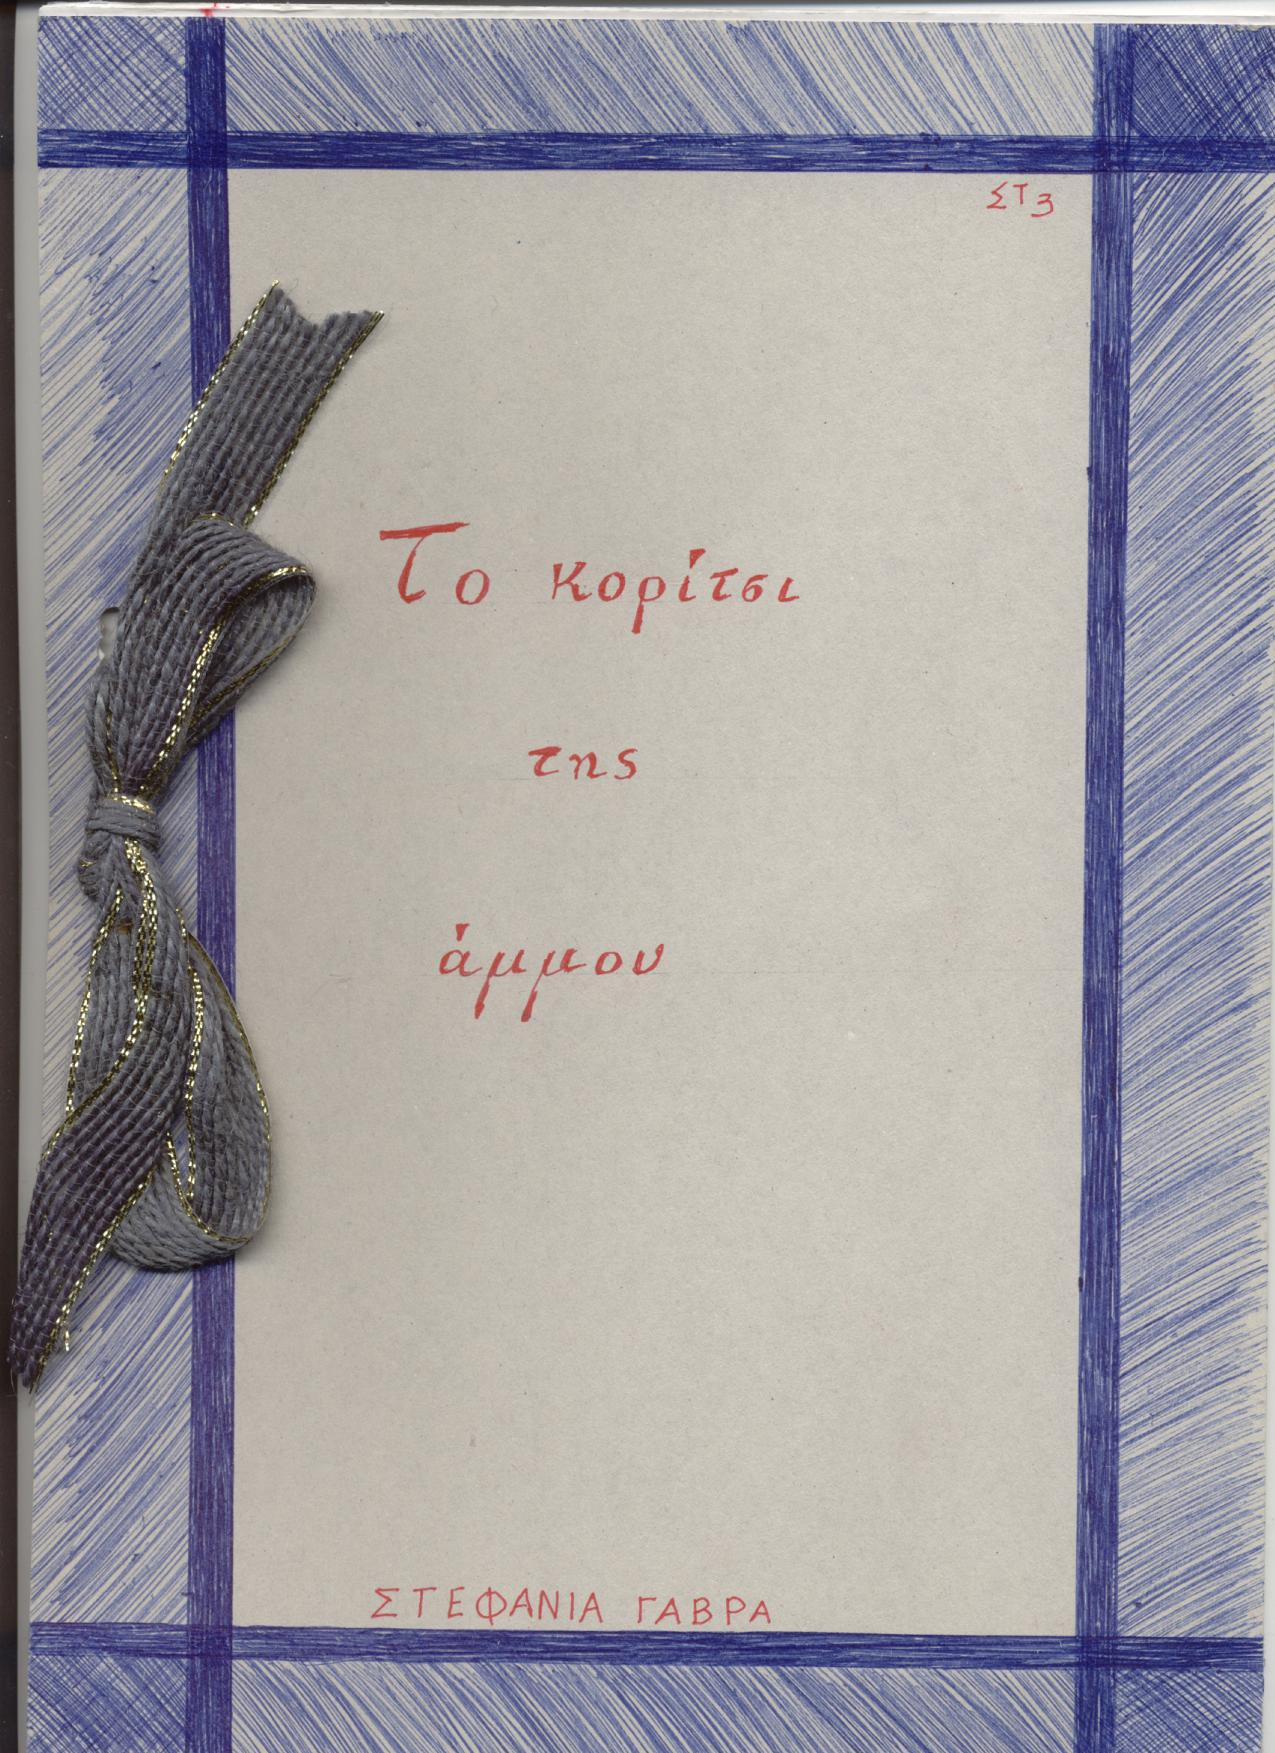 ΣΤ3
Το κορίτσι
της
άμμου
ΣΤΕΦΑΝΙΑ ΓΑΒΡΑ